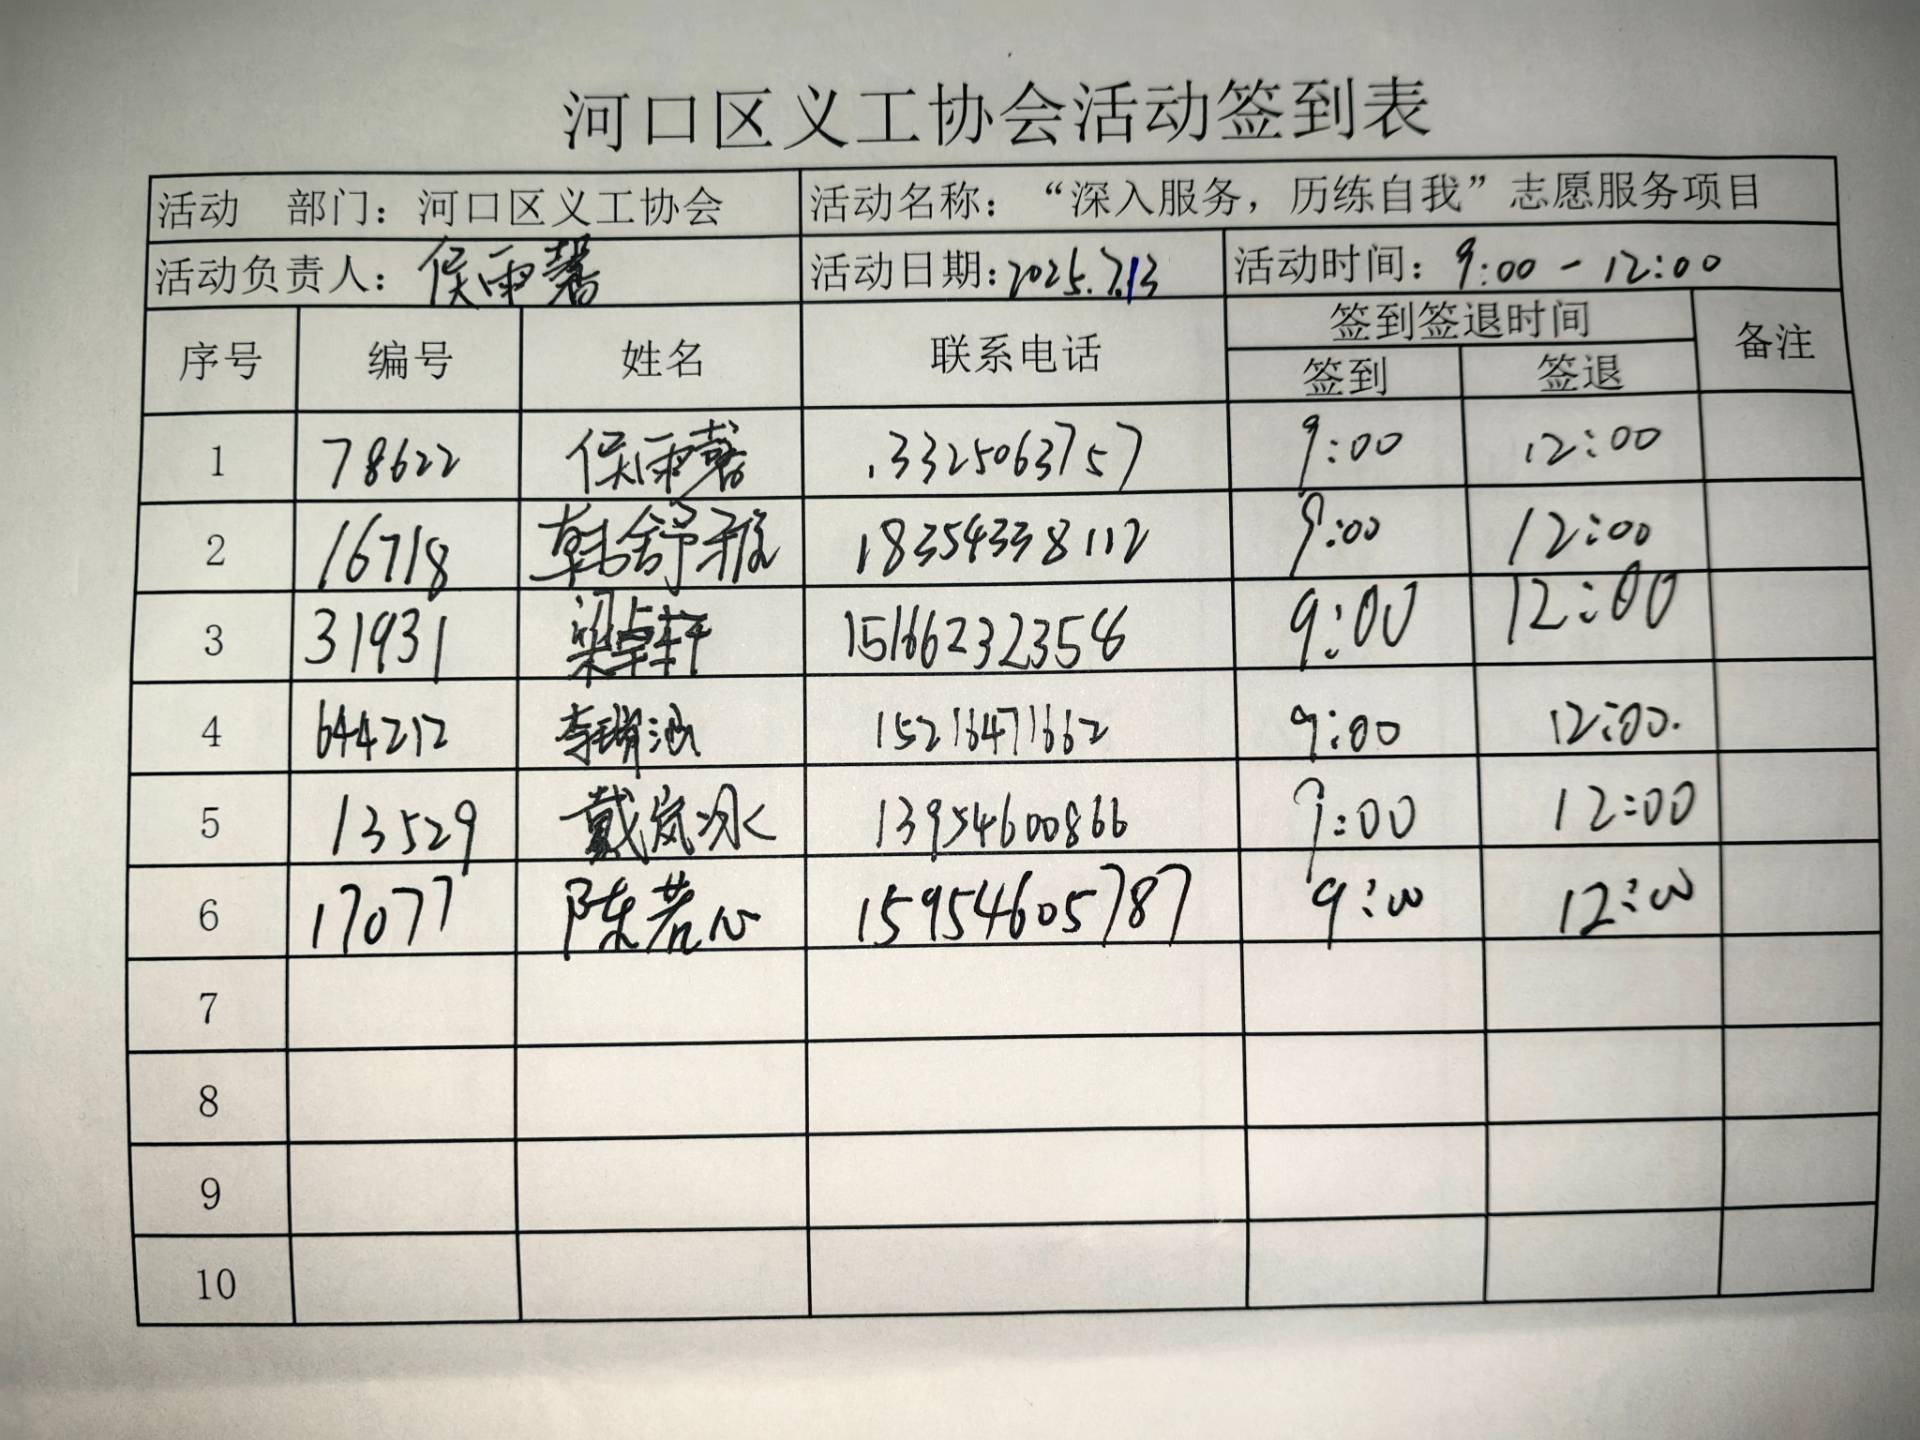 河口区义工协会活动签到表
活动 部门：河口区义工协会 活动名称：“深入服务，历练自我”志愿服务项目
活动负责人：侯雨馨 活动日期：2025.7.13 活动时间：9:00-12:00
序号 编号 姓名 联系电话 签到签退时间 备注
签到 签退
1 78622 侯雨馨 13325063757 9:00 12:00
2 16718 韩舒雅 18354338112 9:00 12:00
3 31931 梁卓轩 15166232358 9:00 12:00
4 644212 李瑞涵 15216471662 9:00 12:00.
5 13529 戴岚冰 13954600866 9:00 12:00
6 17077 陈若心 15954605787 9:00 12:00
7
8
9
10